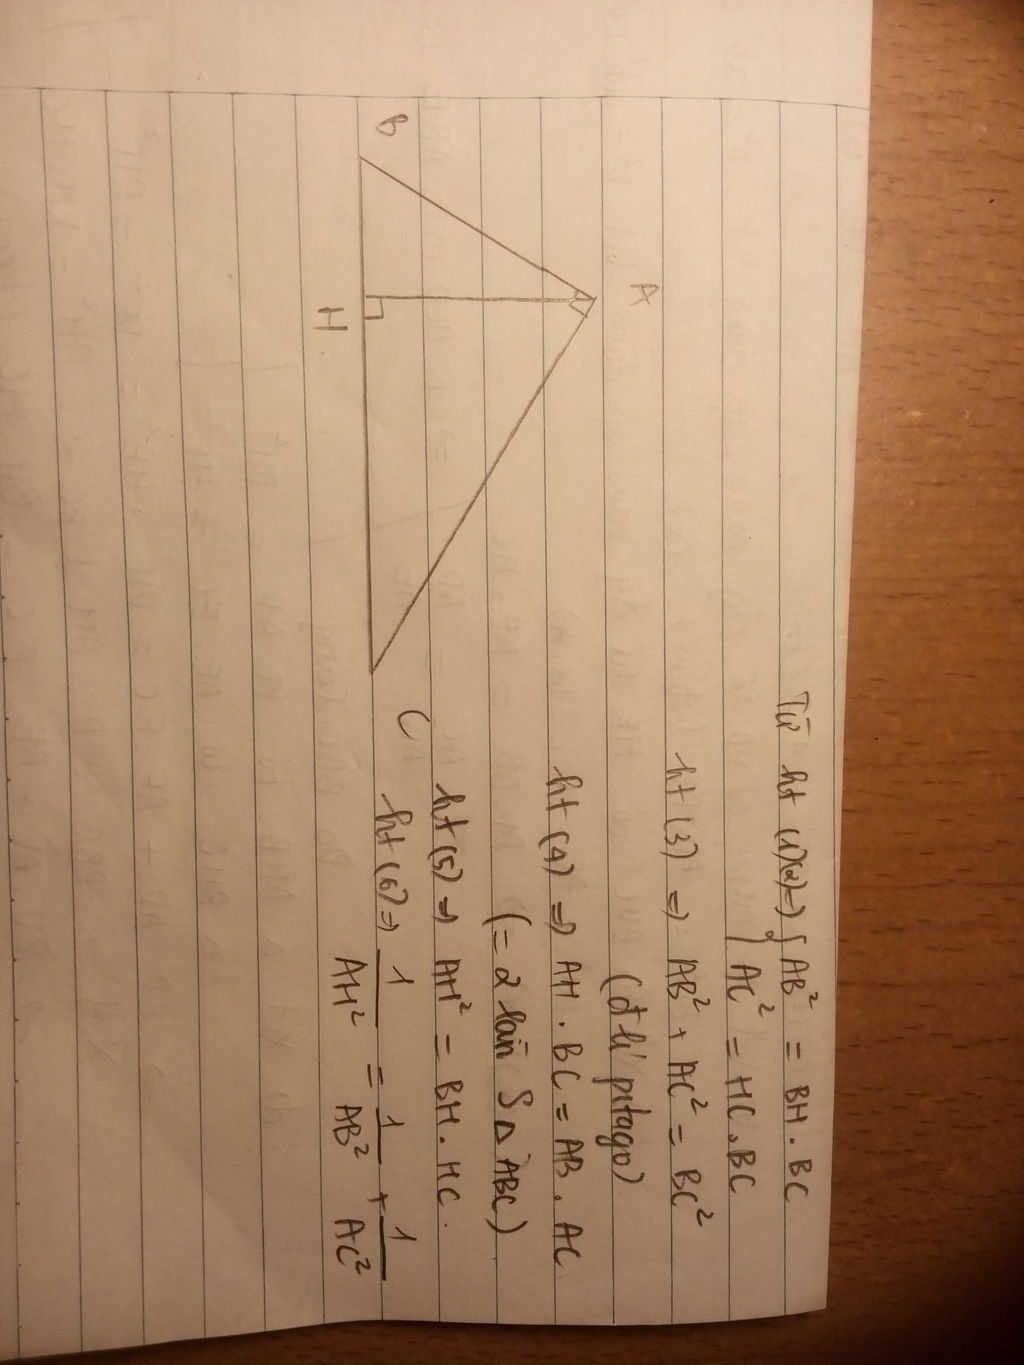 Từ ht (1)(2) → { AB² = BH . BC
AC² = HC . BC
ht (3) ⇒ AB² + AC² = BC²
(đ lí pitago)
ht (4) ⇒ AH . BC = AB . AC.
(= 2 lần S△ABC)
ht (5) ⇒ AH² = BH . HC.
ht (6) ⇒ 1/AH² = 1/AB² + 1/AC²
A
B
H
C